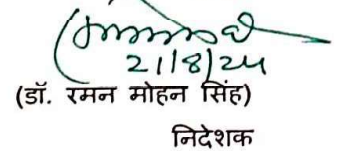 21/8/24
(डॉ. रमन मोहन सिंह)
निदेशक